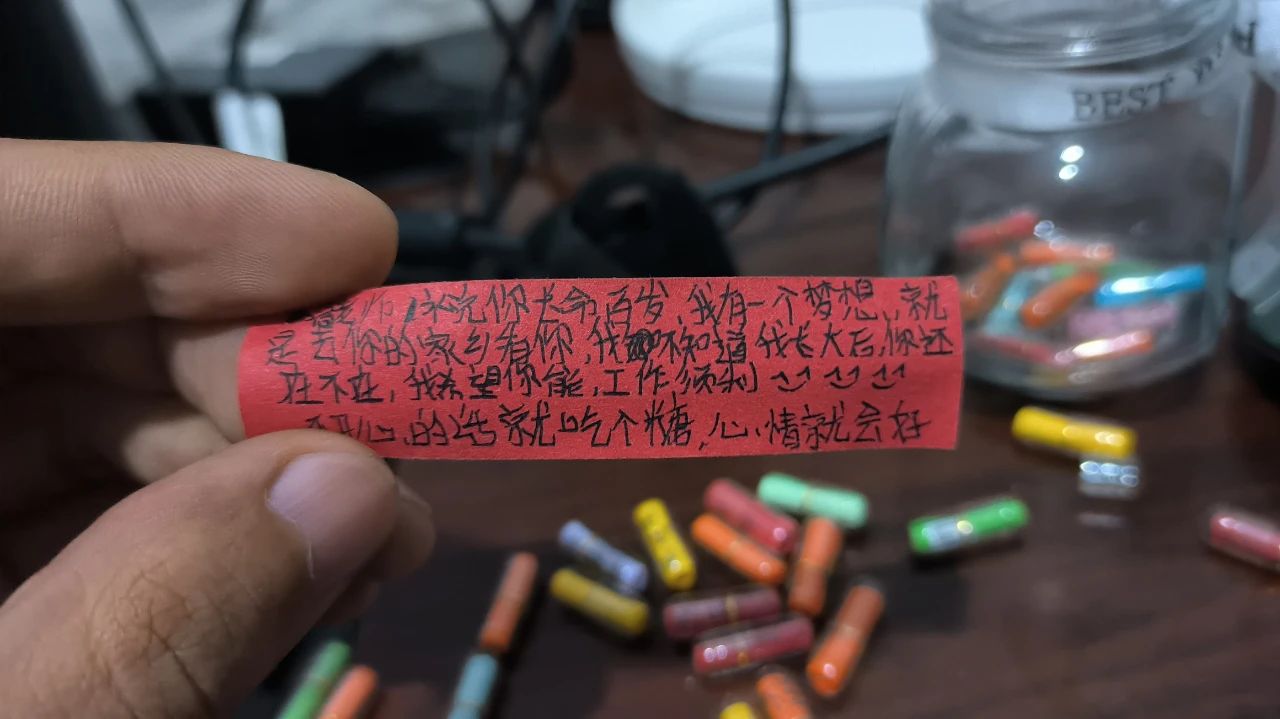 师,祝你长命百岁,我有一个梦想,就
是去你的家乡看你,我不知道我长大后,你还
在不在,我希望你能,工作顺利
心,的话就吃个糖,心,情就会好
BEST